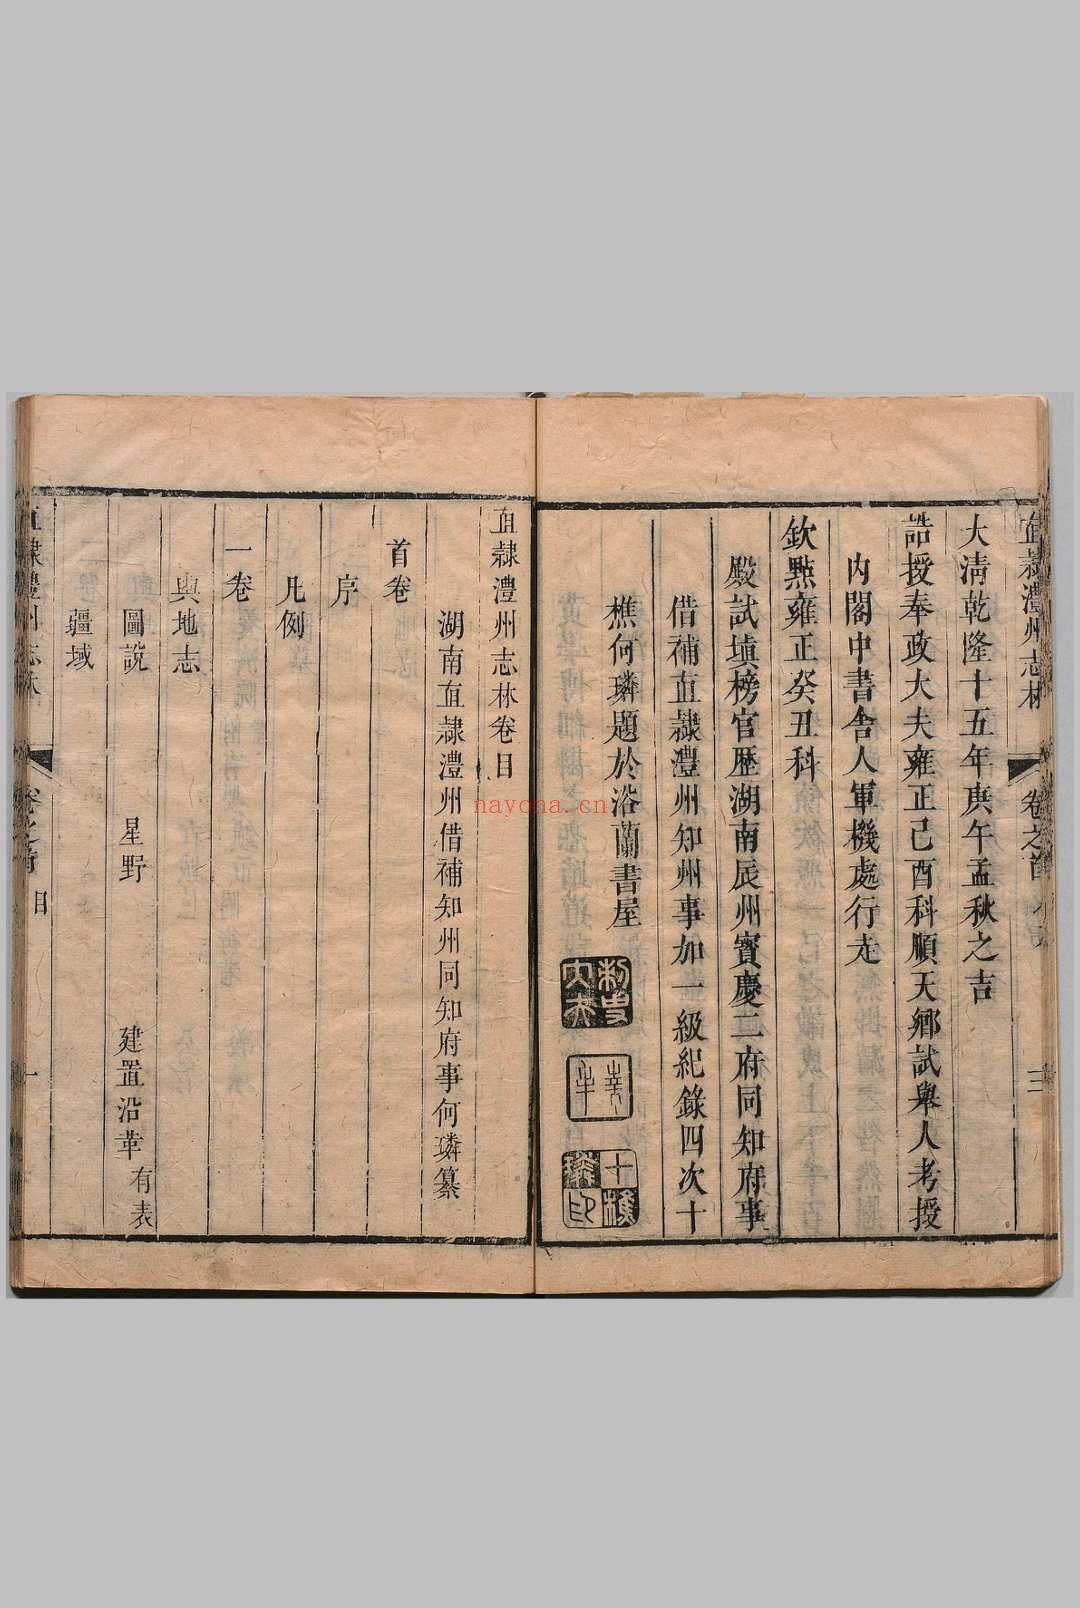 直隸澧州志林
卷之首
三
大清乾隆十五年庚午孟秋之吉
誥授奉政大夫雍正己酉科順天鄉試舉人考授
內閣中書舍人軍機處行走
欽點雍正癸丑科
殿試塡榜官歷湖南辰州寶慶二府同知府事
借補直隸澧州知州事加一級紀錄四次十
樵何璘題於浴蘭書屋
刺史大夫
十樵
璘印
直隸澧州志林卷目
湖南直隸澧州借補知州同知府事何璘纂
首卷
序
凡例
一卷
輿地志
圖說
星野
建置沿革 有表
疆域
直隸澧州志林
卷之首
目
一
nayona.cn